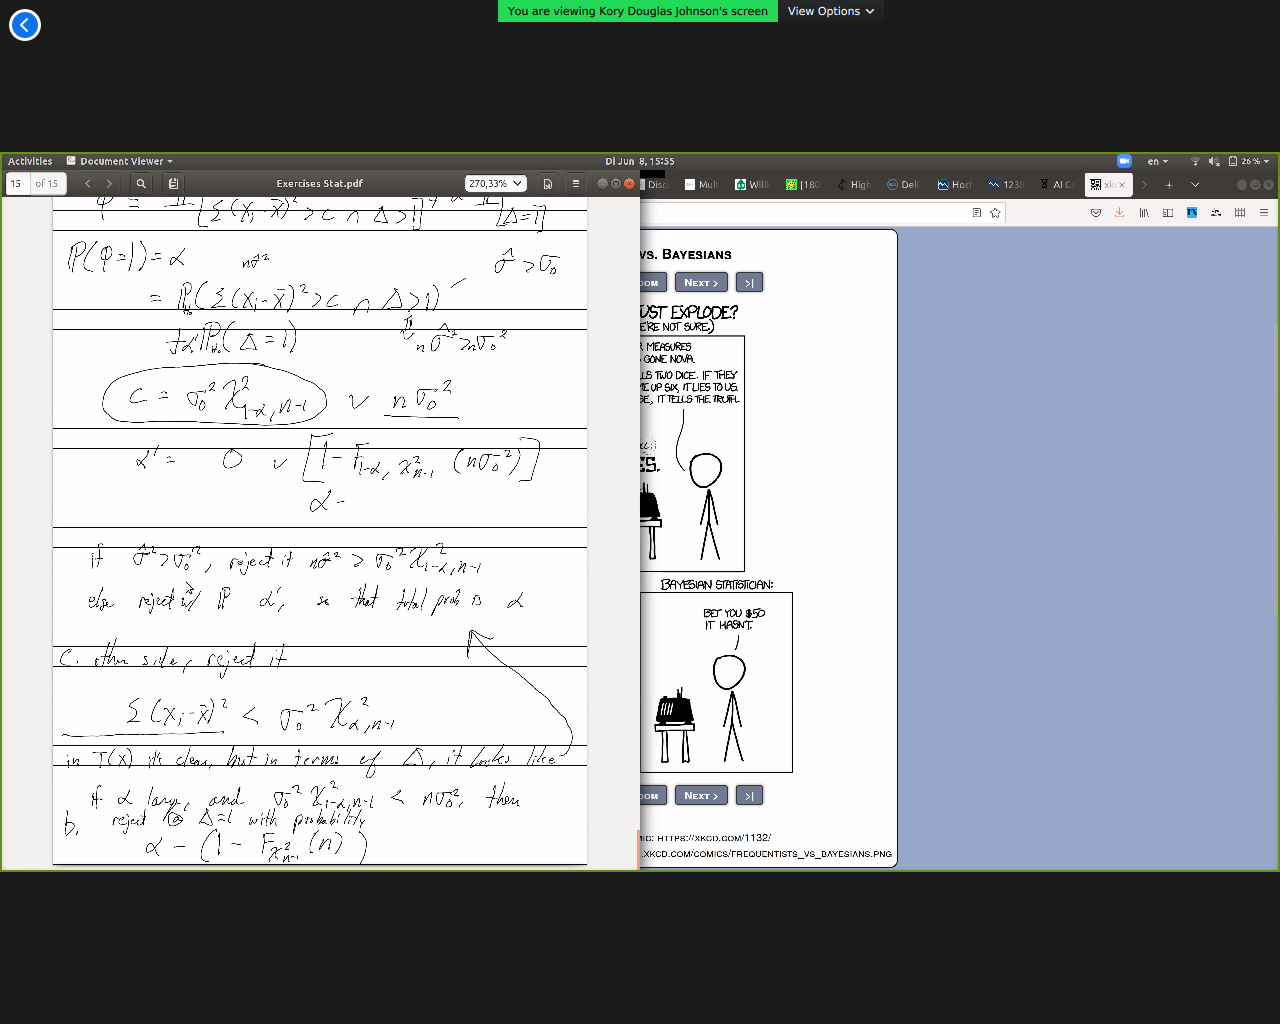 You are viewing Kory Douglas Johnson's screen
View Options
Activities
Document Viewer
Di Jun 8, 15:55
en
26 %
15
of 15
Exercises Stat.pdf
270,33%
Disc
Mult
Willk
[180
High
Dell
Hoch
1238
AI Co
xkc
φ = 𝟙[Σ(xᵢ-x̄)² > c ∩ Δ>1] + α' 𝟙[Δ=1]
P(φ=1) = α
nσ̂²
σ̂ > σ₀
= P_H₀(Σ(xᵢ-x̄)² > c ∩ Δ>1)
+α' P_H₀(Δ=1)
nσ̂² > nσ₀²
c = σ₀² χ²₁₋α,n-1 ∨ nσ₀²
α' = 0 ∨ [1 - F₁₋α, χ²n-1 (nσ₀²)]
α -
if σ̂² > σ₀², reject if nσ̂² > σ₀² χ²₁₋α,n-1
else reject w/ P α', so that total prob is α
c. other side, reject if
Σ(xᵢ-x̄)² < σ₀² χ²α,n-1
in T(x) it's clear, but in terms of Δ, it looks like
if α large, and σ₀² χ²₁₋α,n-1 < nσ₀², then
b. reject @ Δ=1 with probability
α - (1 - Fχ²n-1 (n))
VS. BAYESIANS
OM
NEXT >
>|
UST EXPLODE?
E'RE NOT SURE.)
R MEASURES
GONE NOVA.
LS TWO DICE. IF THEY
E UP SIX, IT LIES TO US.
SE, IT TELLS THE TRUTH.
ES.
BAYESIAN STATISTICIAN:
BET YOU $50
IT HASN'T.
OM
NEXT >
>|
MIC: HTTPS://XKCD.COM/1132/
.XKCD.COM/COMICS/FREQUENTISTS_VS_BAYESIANS.PNG